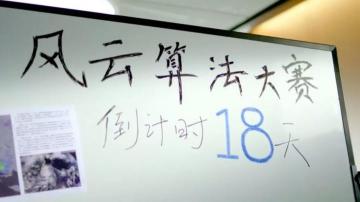 风云算法大赛
倒计时18天